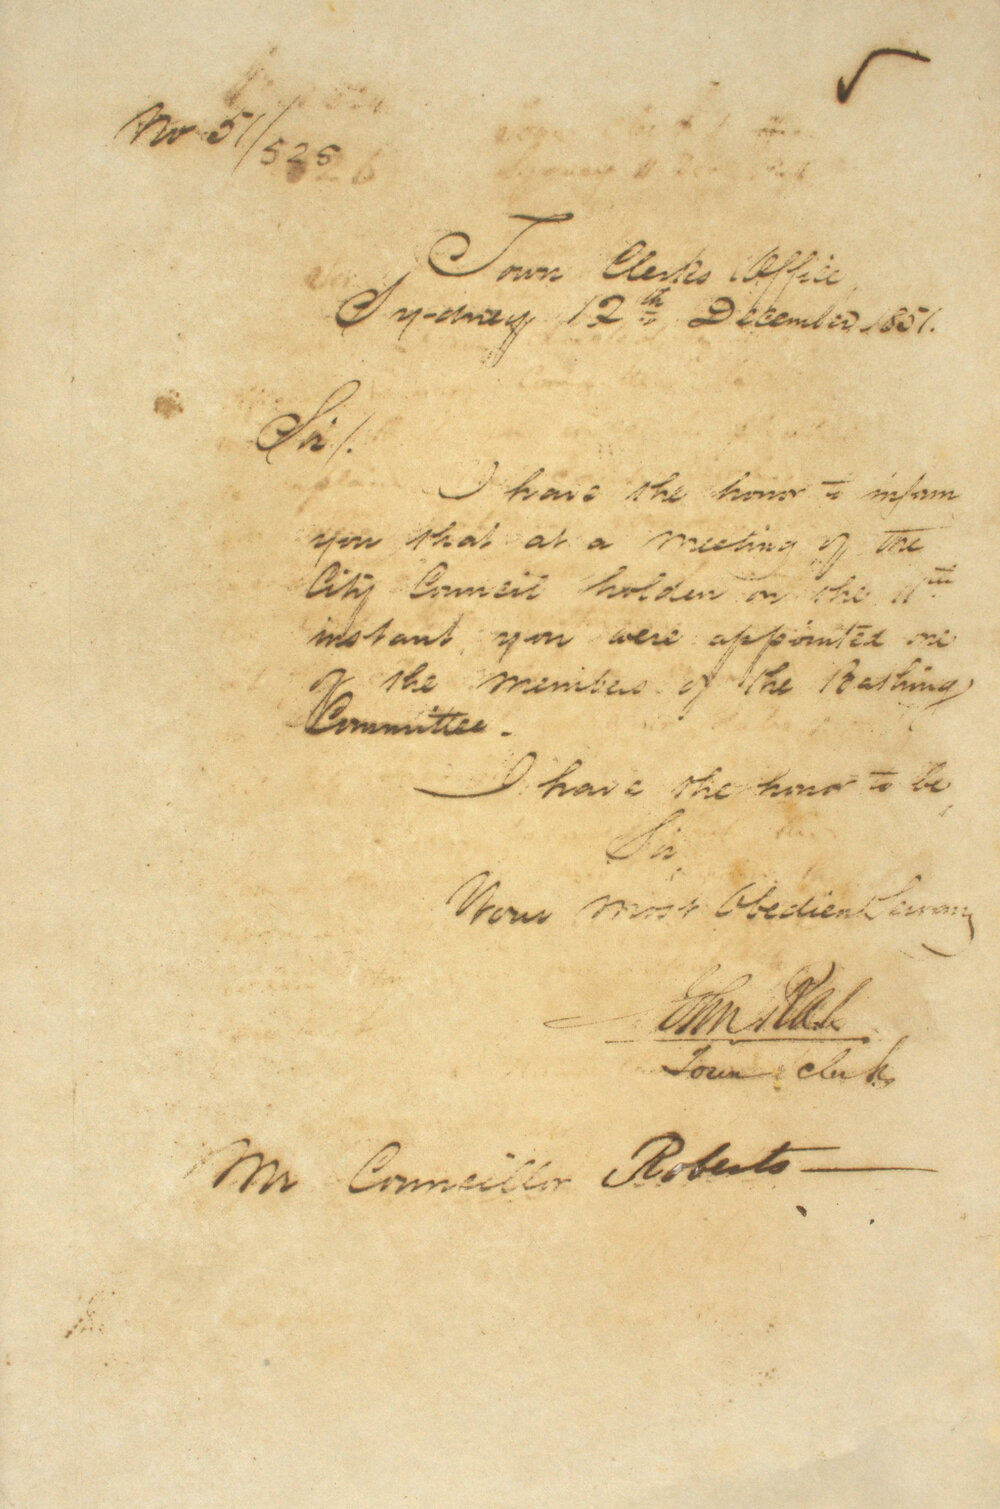 No 51/525
Town Clerks Office
Sydney 12th December 1851.
Sir/.
I have the honor to inform
you that at a meeting of the
City Council holden on the 11th
instant, you were appointed one
of the members of the Bathing
Committee.
I have the honor to be,
Sir,
Your most Obedient Servant
John
Town Clerk
Mr Councillor Roberts